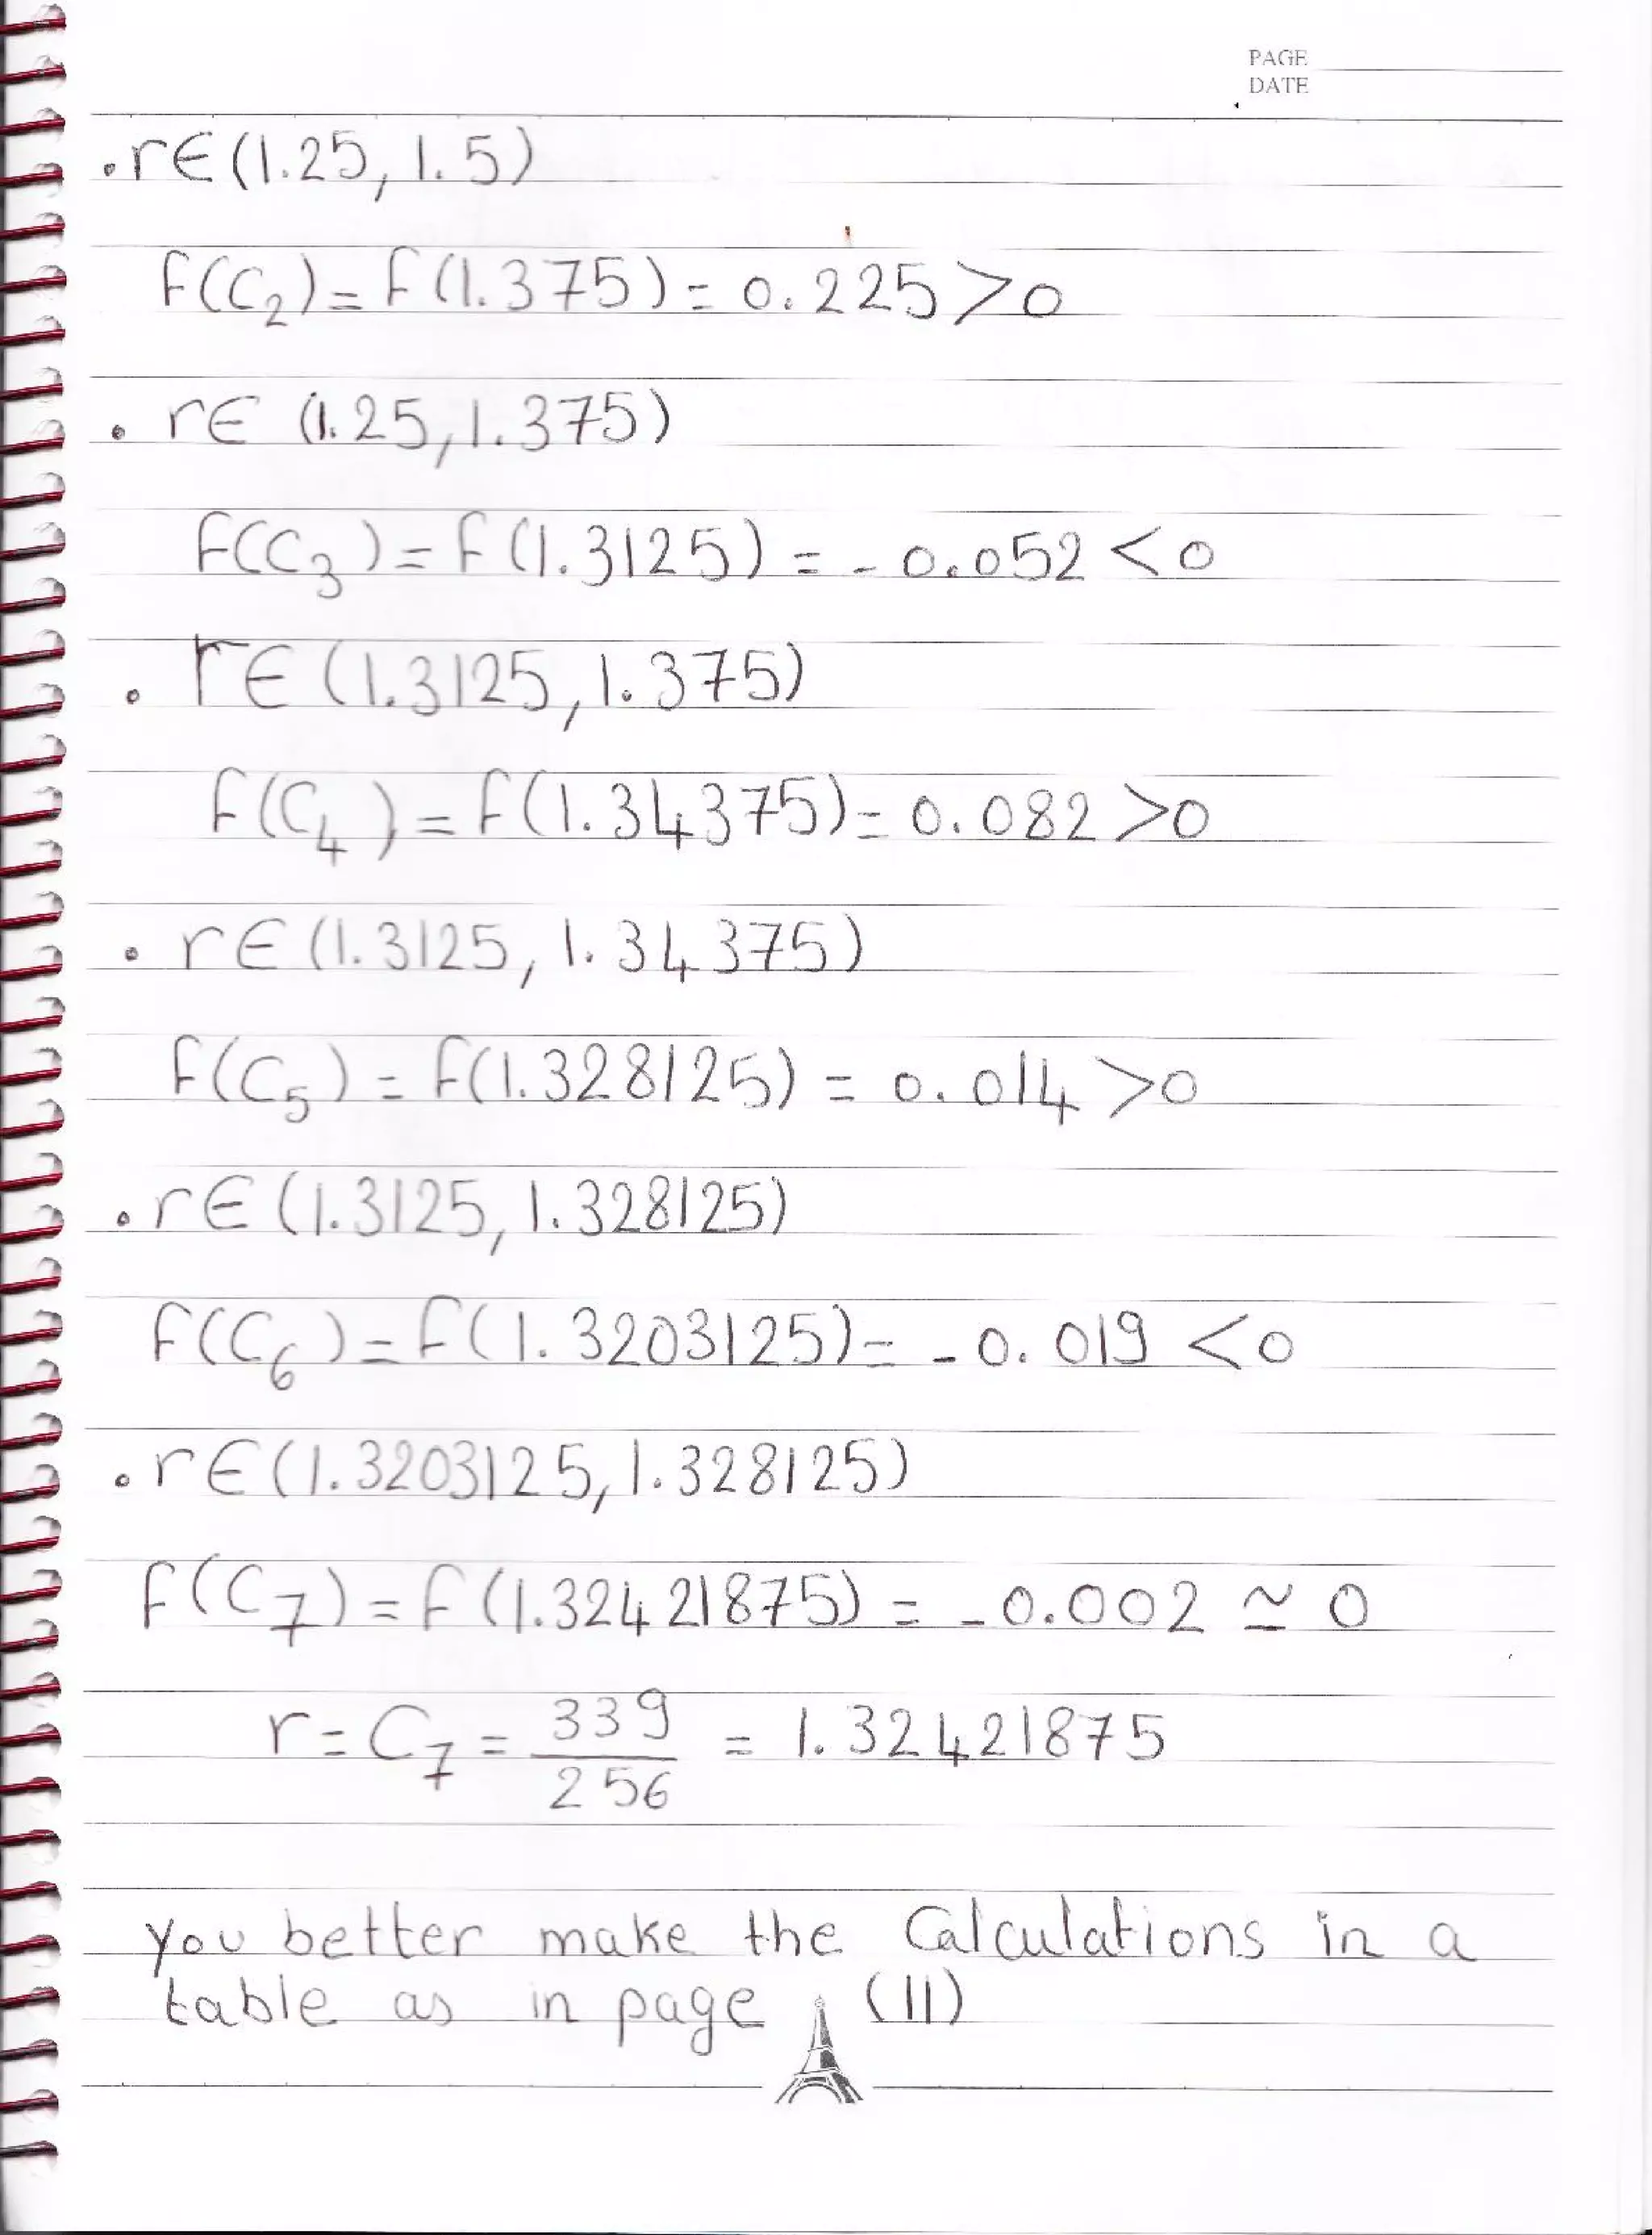 PAGE
DATE
. r∈(1.25, 1.5)
f(C₂) = f(1.375) = 0.225 > 0
. r∈ (1.25, 1.375)
f(C₃) = f(1.3125) = - 0.052 < 0
. r∈ (1.3125, 1.375)
f(C₄) = f(1.34375) = 0.082 > 0
. r∈ (1.3125, 1.34375)
f(C₅) = f(1.328125) = 0.014 > 0
. r∈ (1.3125, 1.328125)
f(C₆) = f(1.3203125) = - 0.019 < 0
. r∈ (1.3203125, 1.328125)
f(C₇) = f(1.32421875) = - 0.002 ≃ 0
r = C₇ = 339/256 = 1.32421875
You better make the Calculations in a
table as in page (11)